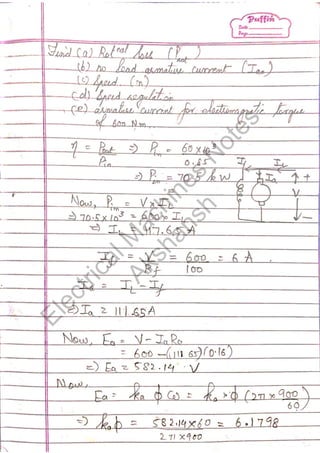 Puffin
Date
Page
Find (a) Rotnal loss (P rot)
(b) no load armature current (Iao)
(c) speed (n)
(d) speed regulation
(e) armature current for electromagnetic torque
of 600 Nm
η = Pout / Pin ⇒ Pin = 60 x 10³ / 0.85
⇒ Pin = 70.5 kW
IL If Ia + V −
Now, Pin = V x IL
⇒ 70.5 x 10³ = 600 x IL
⇒ IL = 117.65 A
If = V / Rf = 600 / 100 = 6 A
Ia = IL − If
⇒ Ia = 111.65 A
Now, Ea = V − Ia Ra
= 600 − (111.65)(0.16)
⇒ Ea = 582.14 V
Now,
Ea = ka ϕ ω = ka x ϕ (2π x 900 / 60)
⇒ ka ϕ = 582.14 x 60 / 2π x 900 = 6.1798
Electrical Machines Notes
Aakanksh